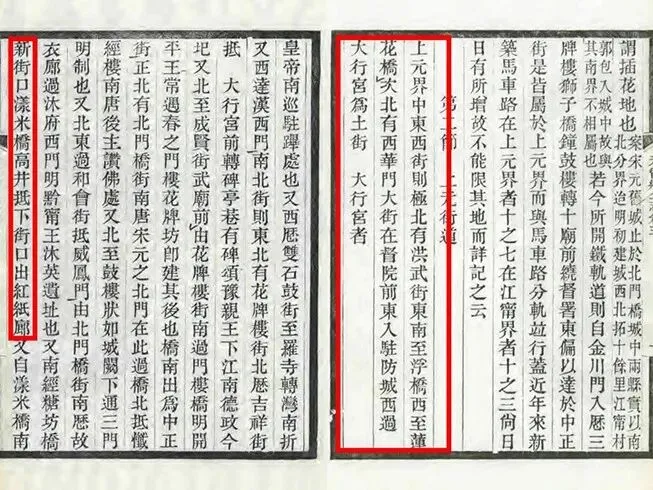 謂插花地也
案宋元舊城止於北門橋城中兩縣實以市
北分界迨明初建城西北拓十餘里江甯材
郭包入城中故與
其南界不相屬也
若今所開鐵軌道則自金川門入歷三
牌樓獅子橋鐘鼓樓轉十廟前繞督署東偏以達於中正
街是皆屬於上元界而與馬車路分軌竝行蓋近年來新
築馬車路在上元界者十之七在江甯界者十之三尙日
日有所增故不能限其地而詳記之云
第二節 上元街道
上元界中東西街則極北有洪武街東南至浮橋西至蓮
花橋次北有西華門大街在督院前東入駐防城西過
大行宮爲土街 大行宮者
皇帝南巡駐蹕處也又西歷雙石鼓街至羅寺轉灣南折
又西達漢西門南北街則東北有花牌樓街北歷吉祥街
抵 大行宮前轉碑亭巷有碑頌豫親王下江南德政今
圯又北至成賢街武廟前由花牌樓街南過門樓橋明開
平王常遇春之門樓花牌坊卽建其後也橋南出爲中正
街正北有北門橋街南唐宋元之北門在此過橋北抵懺
經樓南唐後主讚佛處又北至鼓樓狀如城闕下通三門
明制也又北東過和會街抵威鳳門由北門橋街南歷故
衣廊過沐府西門明黔甯王沐英遺址也又南經糖坊橋
新街口漾米橋高井抵下街口出紅紙廊又自漾米橋南